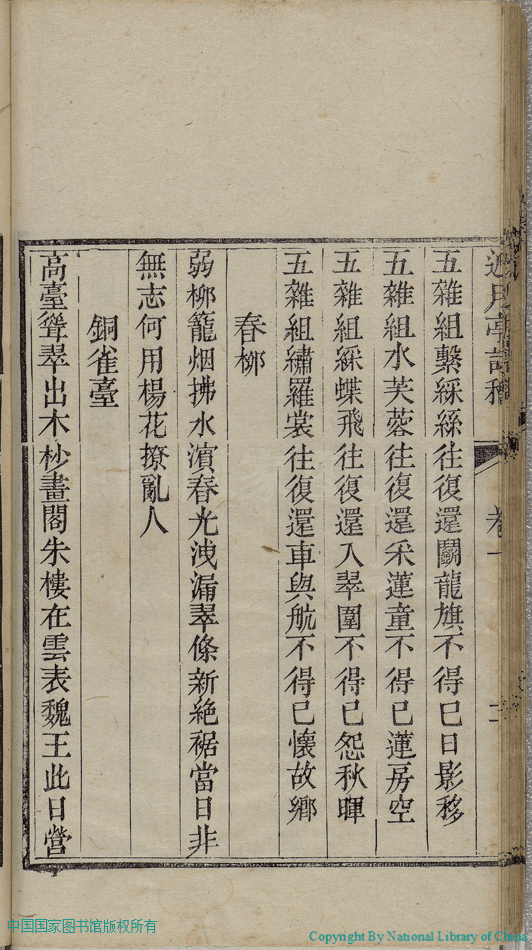 近月亭詩稿 卷一
五雜組繫綵絲往復還鬭龍旗不得已日影移
五雜組水芙蓉往復還采蓮童不得已蓮房空
五雜組綵蝶飛往復還入翠圍不得已怨秋暉
五雜組繡羅裳往復還車與航不得已懷故鄉
春柳
弱柳籠烟拂水濱春光洩漏翠條新絶裾當日非
無志何用楊花撩亂人
銅雀臺
高臺聳翠出木杪畫閣朱樓在雲表魏王此日營
中国国家图书馆版权所有
Copyright By National Library of China